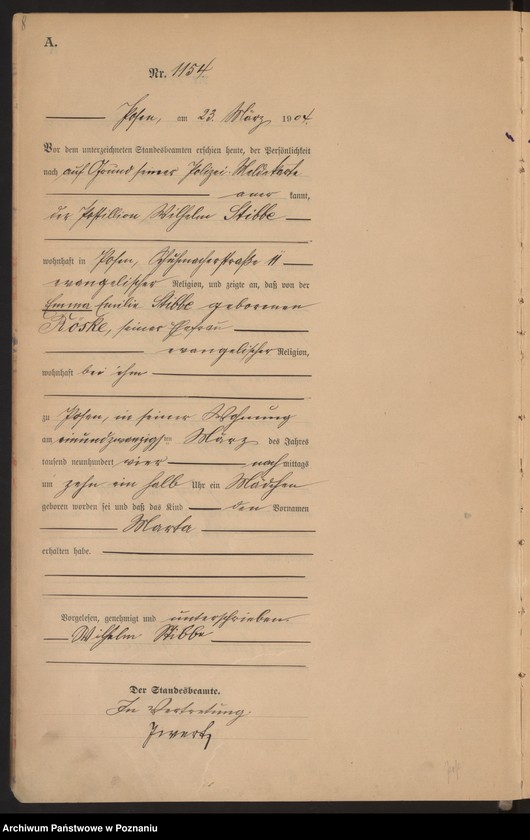 8
A.
Nr. 1154.
Posen, am 23. März 1904.
Vor dem unterzeichneten Standesbeamten erschien heute, der Persönlichkeit
nach auf Grund seiner Polizei-Meldekarte
aner kannt,
der Postillion Wilhelm Stibbe
wohnhaft in Posen, Schuhmacherstraße 11
evangelischer Religion, und zeigte an, daß von der
Emma Emilie Stibbe geborenen
Röske, seiner Ehefrau
evangelischer Religion,
wohnhaft bei ihm
zu Posen, in seiner Wohnung
am einundzwanzigsten März des Jahres
tausend neunhundert vier nachmittags
um zehn ein halb Uhr ein Mädchen
geboren worden sei und daß das Kind den Vornamen
Marta
erhalten habe.
Vorgelesen, genehmigt und unterschrieben.
Wilhelm Stibbe
Der Standesbeamte.
In Vertretung.
Archiwum Państwowe w Poznaniu